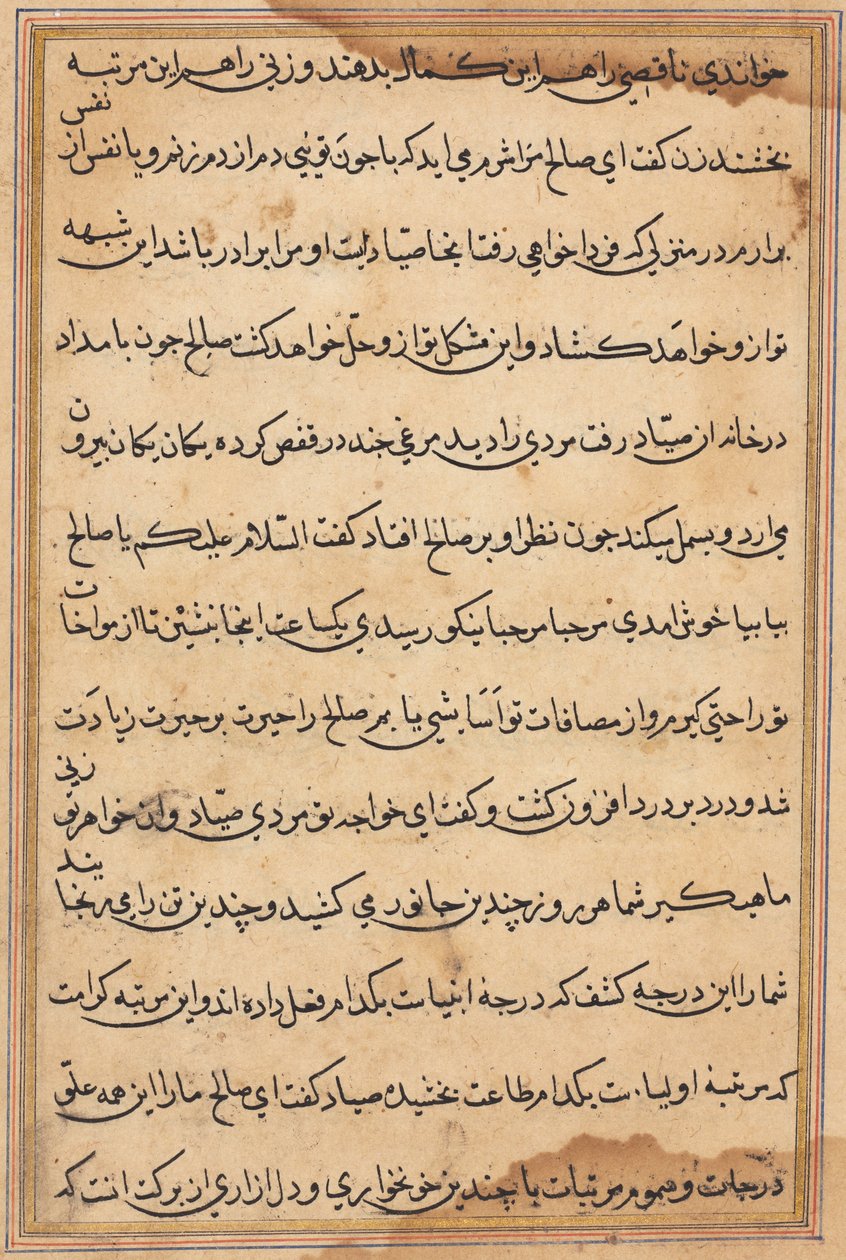 خواندي ناقصي را هم اين كمال بدهند و زني را هم اين مرتبه
بخشند زن كفت اي صالح مرا شرم مي ايد كه با جون تويي دم از دم زنم و يا نفس از نفس
برارم در منزلي كه فردا خواهي رفت انجا صيّاديست او مرا برادر باشد اين شبهه
تو از و خواهَد كشاد و اين مشكل تو از و حلّ خواهد كشت صالح جون بامداد
در خانه ان صيّاد رفت مردي را ديد مرغي جند در قفص كرده يكان يكان بيرون
مي ارد و بسمل ميكند جون نظر او بر صالح افتاد كفت السّلام عليكم يا صالح
بيا بيا خوش امدي مرحبا مرحبا نيكو رسيدي يكساعت اينجا بنشين تا از مواخات
تو راحتي كيرم و از مصافات تو اَسَايشي يابم صالح را حيرت بر حيرت زيادَت
شد و درد بر درد افزون كشت و كفت اي خواجه تو مردي صيّاد و ان خواهر تو زني
ماهيكير شما هر روز چندين جانور مي كشيد و چندين تن را مي رنجانيد
شما را اين درجه كشف كه درجهٔ انبياست بكدام فعل داده اند و اين مرتبه كرامت
كه مرتبهٔ اولياست بكدام طاعت بخشيده صياد كفت اي صالح ما را اين همه علّو
درجات و سموم مرتبات با چندين خونخواري و دل ازاري از بركت انست كه